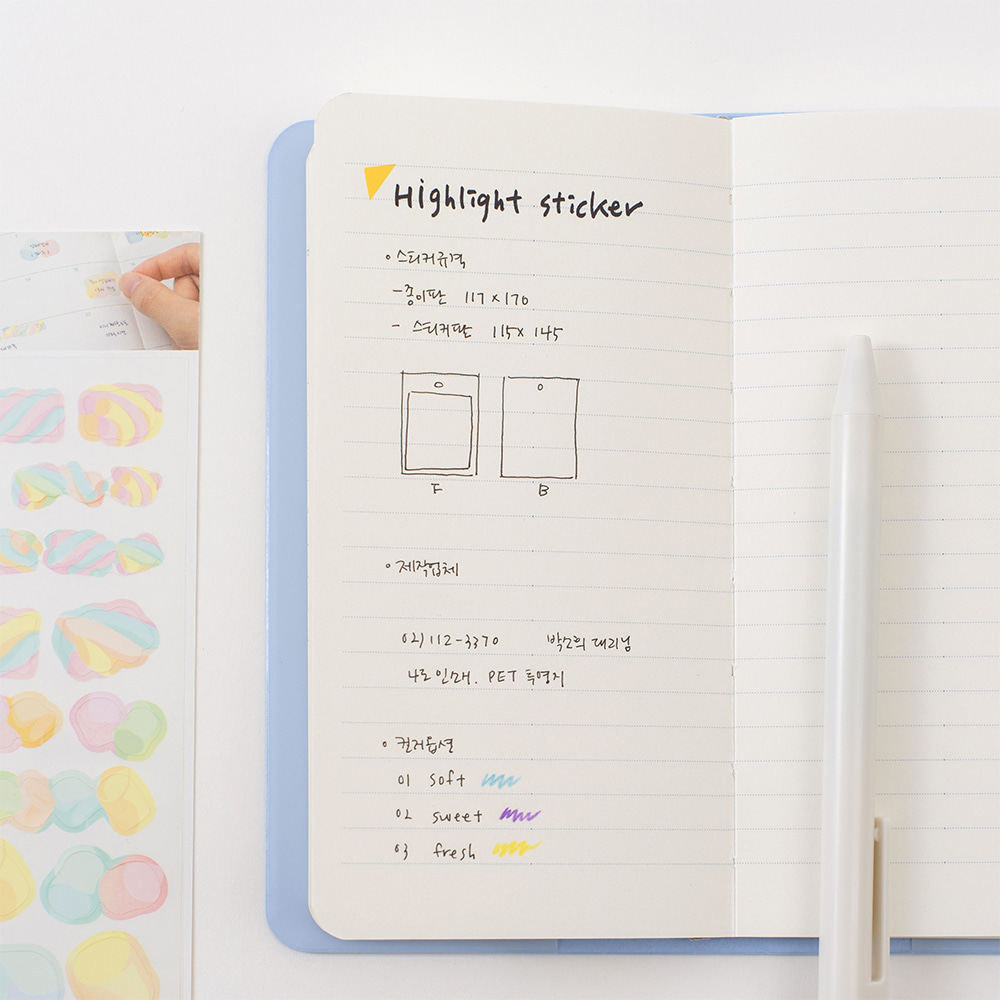 Highlight sticker
스티커규격
- 종이판 117 x 170
- 스티커판 115 x 145
F B
제작업체
02) 112-3370 박소희 대리님
나로인쇄. PET 투명지
컬러옵션
01 soft
02 sweet
03 fresh